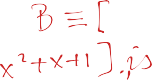 B ≡ [
x² + x + 1 ] . is